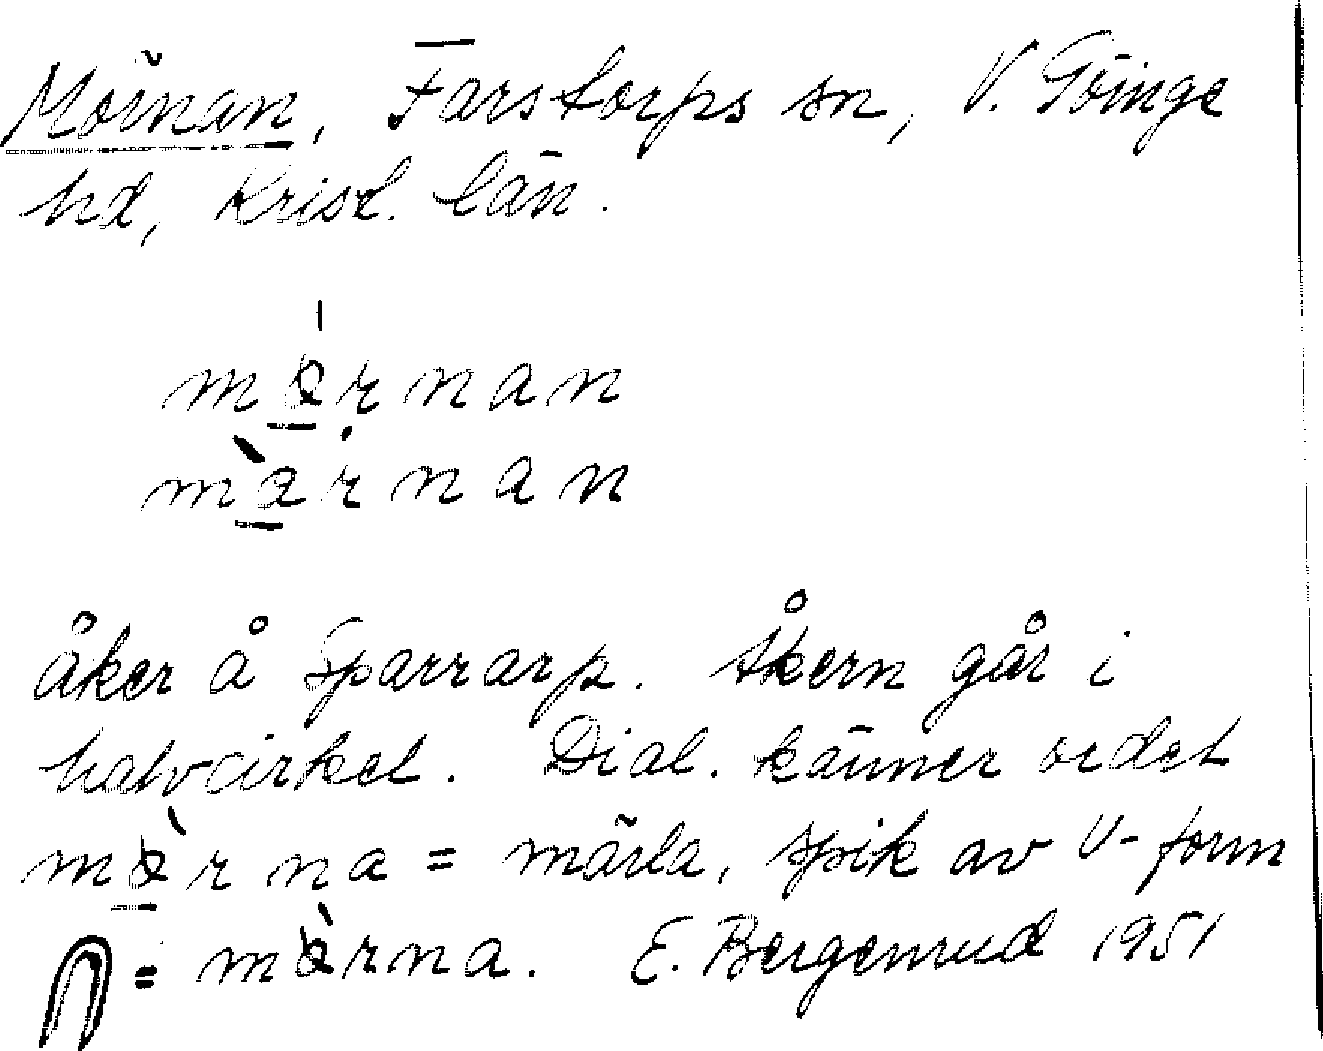 Mörnan, Farstorps sn, V. Göinge
hd, Krist. län.
mɵrnan
mɑrnan
åker å Sparrarp. Åkern går i
halvcirkel. Dial. känner ordet
mɵrna = märla, spik av U-form
= mɵrna. E. Bergenrud 1951